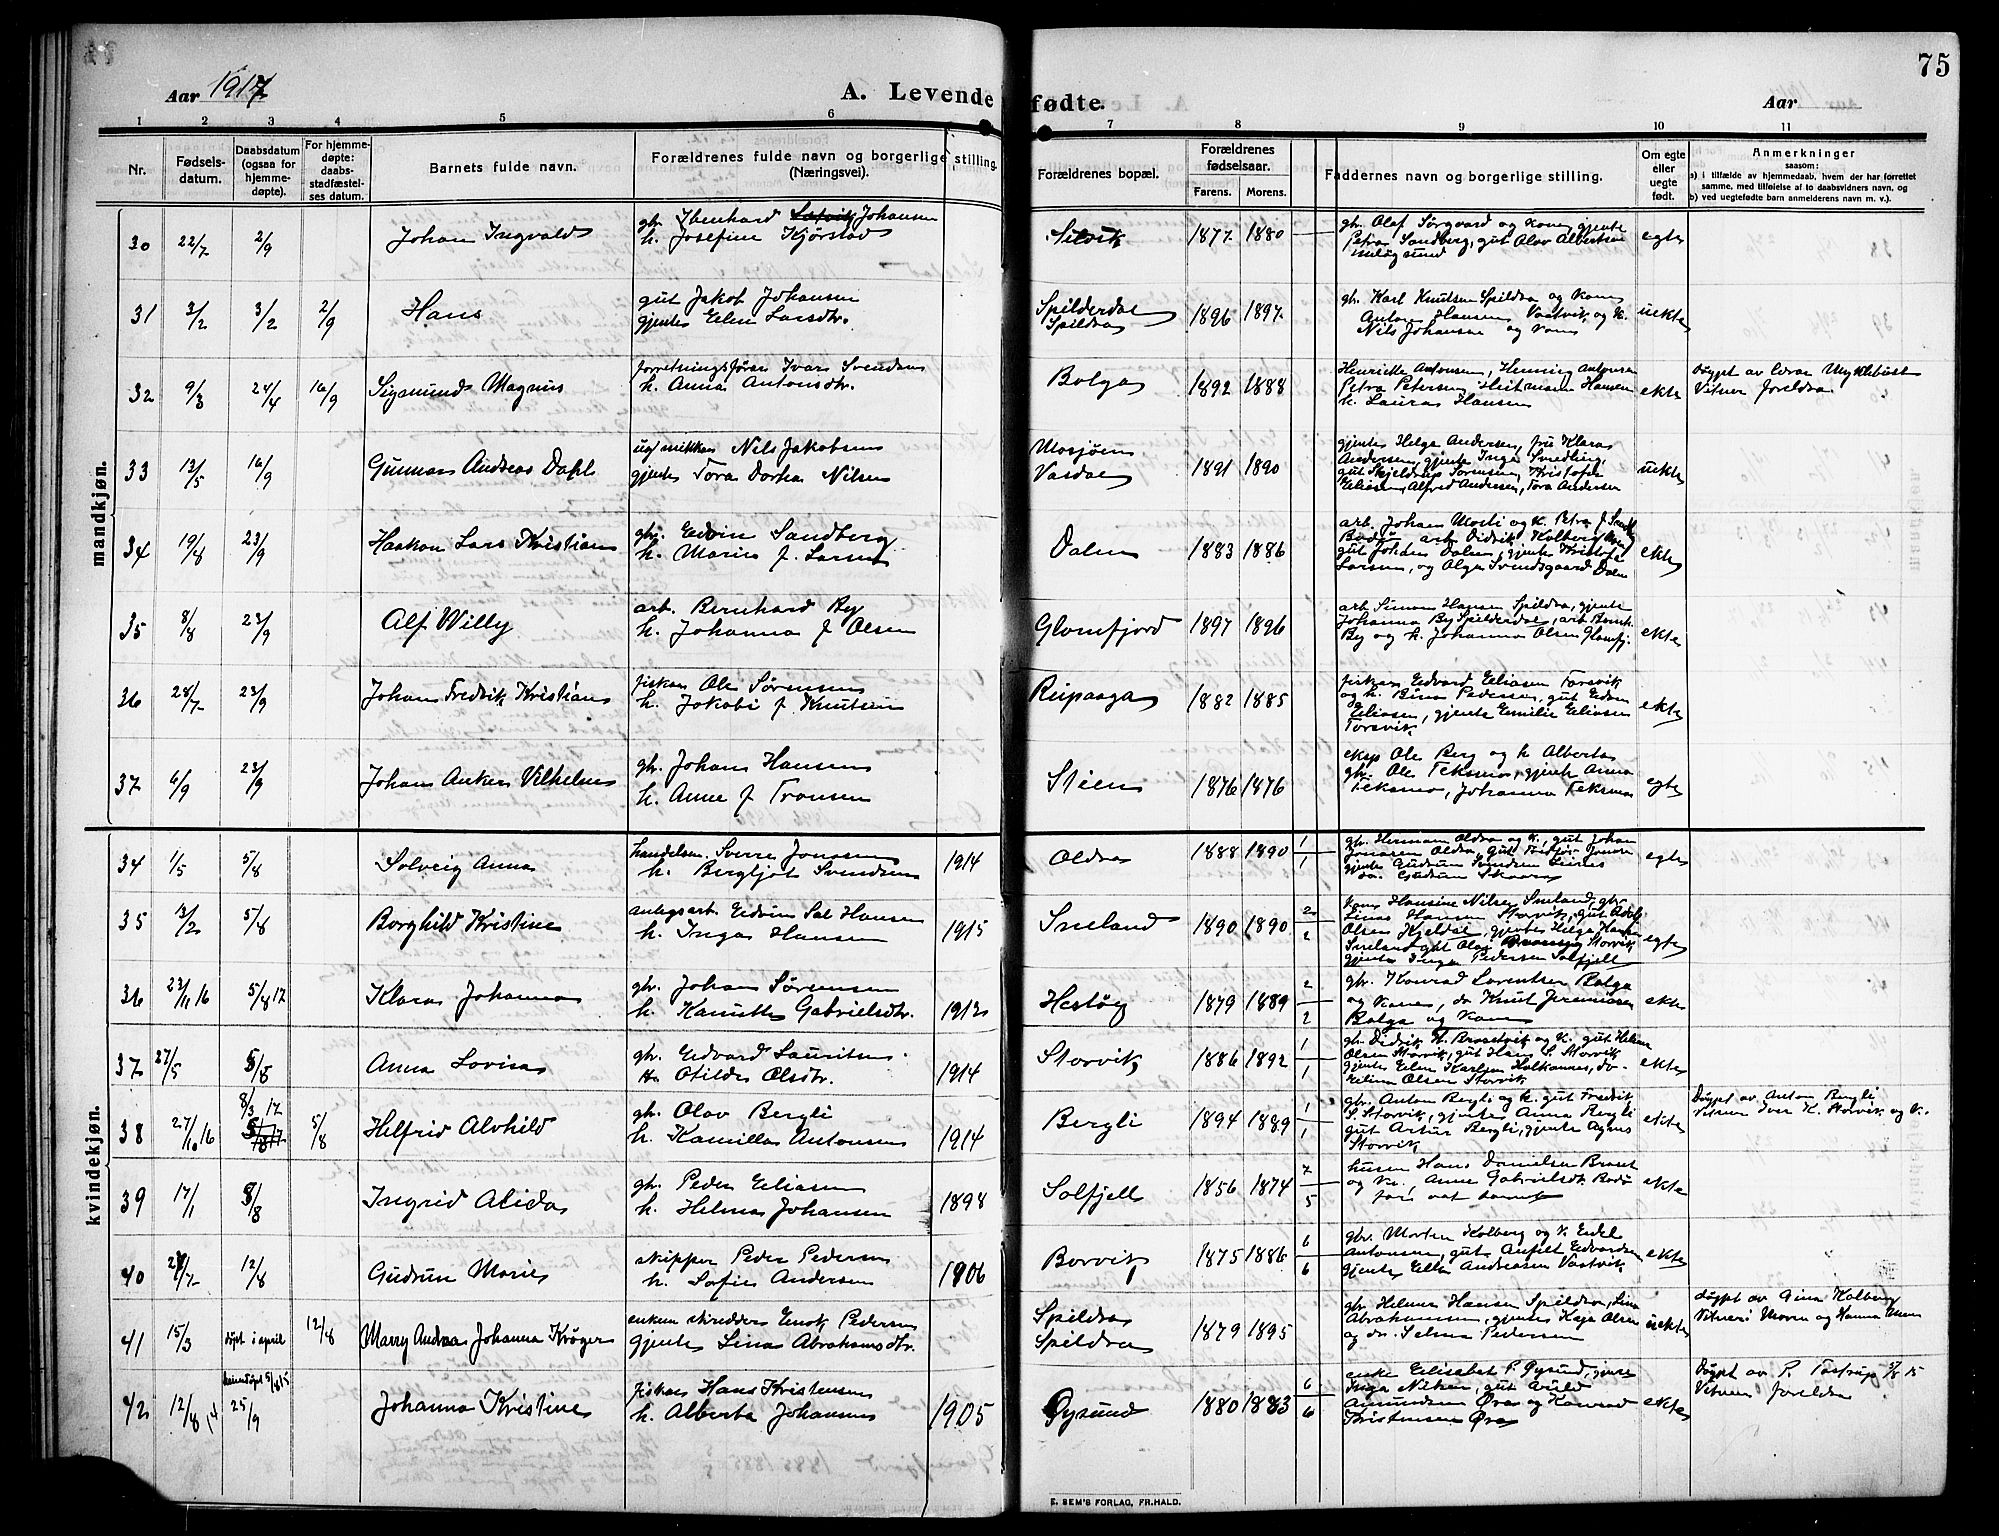 75
Aar 1917
A. Levende fødte.
Aar
1 2 3 4 5 6 7 8 9 10 11
Nr.
Fødselsdatum.
Daabsdatum (ogsaa for hjemmedøpte).
For hjemmedøpte: daabsstadfæstelses datum.
Barnets fulde navn.
Forældrenes fulde navn og borgerlige stilling.
(Næringsvei).
Forældrenes bopæl.
Forældrenes fødselsaar.
Farens. Morens.
Faddernes navn og borgerlige stilling.
Om egte eller uegte født.
Anmerkninger
saasom:
a) i tilfælde av hjemmedaab, hvem der har forrettet
samme, med tilføielse af to daabsvidners navn, og
b) ved uegtefødte børn anmelderens navn m. v.).
mandkjøn.
30 22/7 2/9 Johan Ingvald
gbr. Ibenhard Johansen
h. Josefine Kjørstad
Selvik 1877 1880
gbr. Olaf Sørgaard og kone, gjente
Petra Sandberg, gut Olav Albertsen
egte
31 3/2 3/2 2/9 Hans
gut Jakob Johansen
gjente Elen Larsdtr.
Spilderdal
Spildra
1896 1897
gbr. Karl Knutsen Spildra og kone
Anton Hansen Vaatvik og k.
Nils Johansen og kone
uekte
32 9/3 24/4 16/9 Sigmund Magnus
forretningsfører Ivar Svendsen
h. Anna Antonsdtr.
Bolga 1892 1888
Henriette Antonsen, Henning Antonsen
Petra Petersen, Hansen
h. Laura Hansen
ekte
Døypt av Myklebust
Vitner foreldra
33 13/5 16/9 Gunnar Andreas Dahl
Nils Jakobsen
gjente Tora Dortea Nilsen
Mosjøen
Vasdal
1891 1890
gjente Helga Andersen, fru Klara
Andersen, gjente Inga
gut Skjeldrup Sørensen, Kristofer
Eliasen, Alfred Andersen, Tora Andersen
uekte
34 19/8 23/9 Haakon Lars Kristian
gbr. Edvin Sandberg
h. Marie f. Larsen
Dalen 1883 1886
arb. Johan Mosti og k. Petra f.
Bodø, arb Didrik Kolberg
gut Johan Dalen, gjente Kristofa
Larsen, og Olga Svendsgaard Dalen
ekte
35 8/8 23/9 Alf Willy
arb. Bernhard By
h. Johanna f Olsen
Glomfjord 1897 1896
arb Simon Hansen Spildra, gjente
Johanna By Spilderdal, arb Bernh.
By og h. Johanna Olsen Glomfj.
ekte
36 28/7 23/9 Johan Fredrik Kristian
fisker Ole Sørensen
h. Jakobi f. Knutsen
Reipaaga 1882 1885
fisker Edvard Eliasen Torsvik
og h. Bina Pedersen, gut Edon
Eliasen, gjente Emilie Eliasen
Torsvik
ekte
37 6/9 23/9 Johan Anker Vilhelm
gbr. Johan Hansen
h. Anne f Tronsen
Stien 1876 1876
eksp Ole Berg og h Alberta
gbr. Ole Teksmo, gjente Anna
Teksmo, Johanna Teksmo
egte
kvindekjøn.
34 1/5 5/8 Solveig Anna
handelsm. Sverre Jonassen
h. Bergljot Svendsen
1914
Oldra 1888 1890 1/1
gbr. Herman Oldra og k., gut Johan
Jonassen Oldra, gut Fridtjof Jonsen
gjente Gudrun Svendsen
do. Gudrun Skaara
egte
35 3/2 5/8 Borghild Kristine
anlegsarb. Edvin Sal Hansen
h. Inga Hansen
1915
Sneland 1890 1890 2/2
kone Hansine Nilsen Sneland, gbr
Linas Hansen Storvik, gut Adolf
Olsen Kjeldal, gjente Helga Hansen
Sneland gut Olaf Storvik
gjente Inga Pedersen Solfjell
egte
36 23/11 16 5/8 17 Klara Johanna
gbr. Johan Sørensen
h. Kanutte Gabrielsdtr.
1912
Hestøy 1879 1889 2/2
gbr. Konrad Lorentsen Bolga
og kone, do Knut Jeremiasen
Bolga og kone
ekte
37 27/5 5/8 Anna Lovisa
gbr. Edvard Lauritsen
h. Otilde Olsdtr.
1914
Storvik 1886 1892 1/1
gbr. Didrik H. Brasetvik og k. gut Helmer
Olsen Storvik, gut Hans S. Storvik
gjente Elen Karlsen Holkannes, do
Eline Olsen Storvik
ekte
38 27/10 16 8/3 17 5/8 Helfrid Alvhild
gbr. Olav Bergli
h. Kamilla Antonsen
1914
Bergli 1894 1889 1/1
gbr. Anton Bergli og k. gut Fredrik
S. Storvik, gjente Anna Bergli
gut Artur Bergli, gjente Agnes
Storvik
ekte
Døypt av Anton Bergli
Vitner Iver K. Storvik og k.
39 17/1 8/8 Ingrid Alida
gbr. Peder Eliasen
h. Helma Johansen
1898
Solfjell 1856 1874 7/5
husm Hans Danielsen Braset
og k., Anne Gabrielsdt. Bodø
ekte
40 27/7 12/8 Gudrun Marie
skipper Peder Pedersen
h. Sofie Andersen
1906
Borvik 1875 1886 6/6
gbr. Morten Kolberg og k Edel
Antonsen, gut Anfelt Edvardsen
gjente Ella Andreasen Vaatvik
ekte
41 15/3 døpt i april 12/8 Marry Andrea Johanna Krøger
enkem skredder Enok Pedersen
gjente Lina Abrahamsdtr.
Spildra
Spildra
1879 1895
gbr. Helmer Hansen Spildra, Lina
Abrahamsen, gjente Kaja Olsen
og do. Selma Pedersen
uekte
Døypt av Gina Kolberg
Vitner: Moren og Hanna Moen
42 12/8 14 heimdøpt 5/8 15 25/9 Johanna Kristine
fisker Hans Kristensen
h. Alberta Johansen
1905
Øysund 1880 1883 6/6
enke Elisabet P. Øysund, gjente
Inga Nilsen, gut Arild
Amundsen Øra og Konrad
Kristensen Øra
ekte
Døypt av P. Tostrup 5/8 15
Vitner foreldra
E. SEM'S FORLAG, FR.HALD.